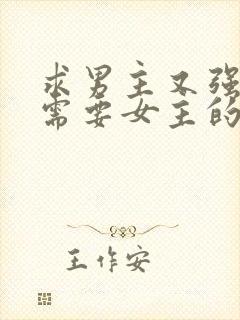 求男主又强
需要女主的
王作安